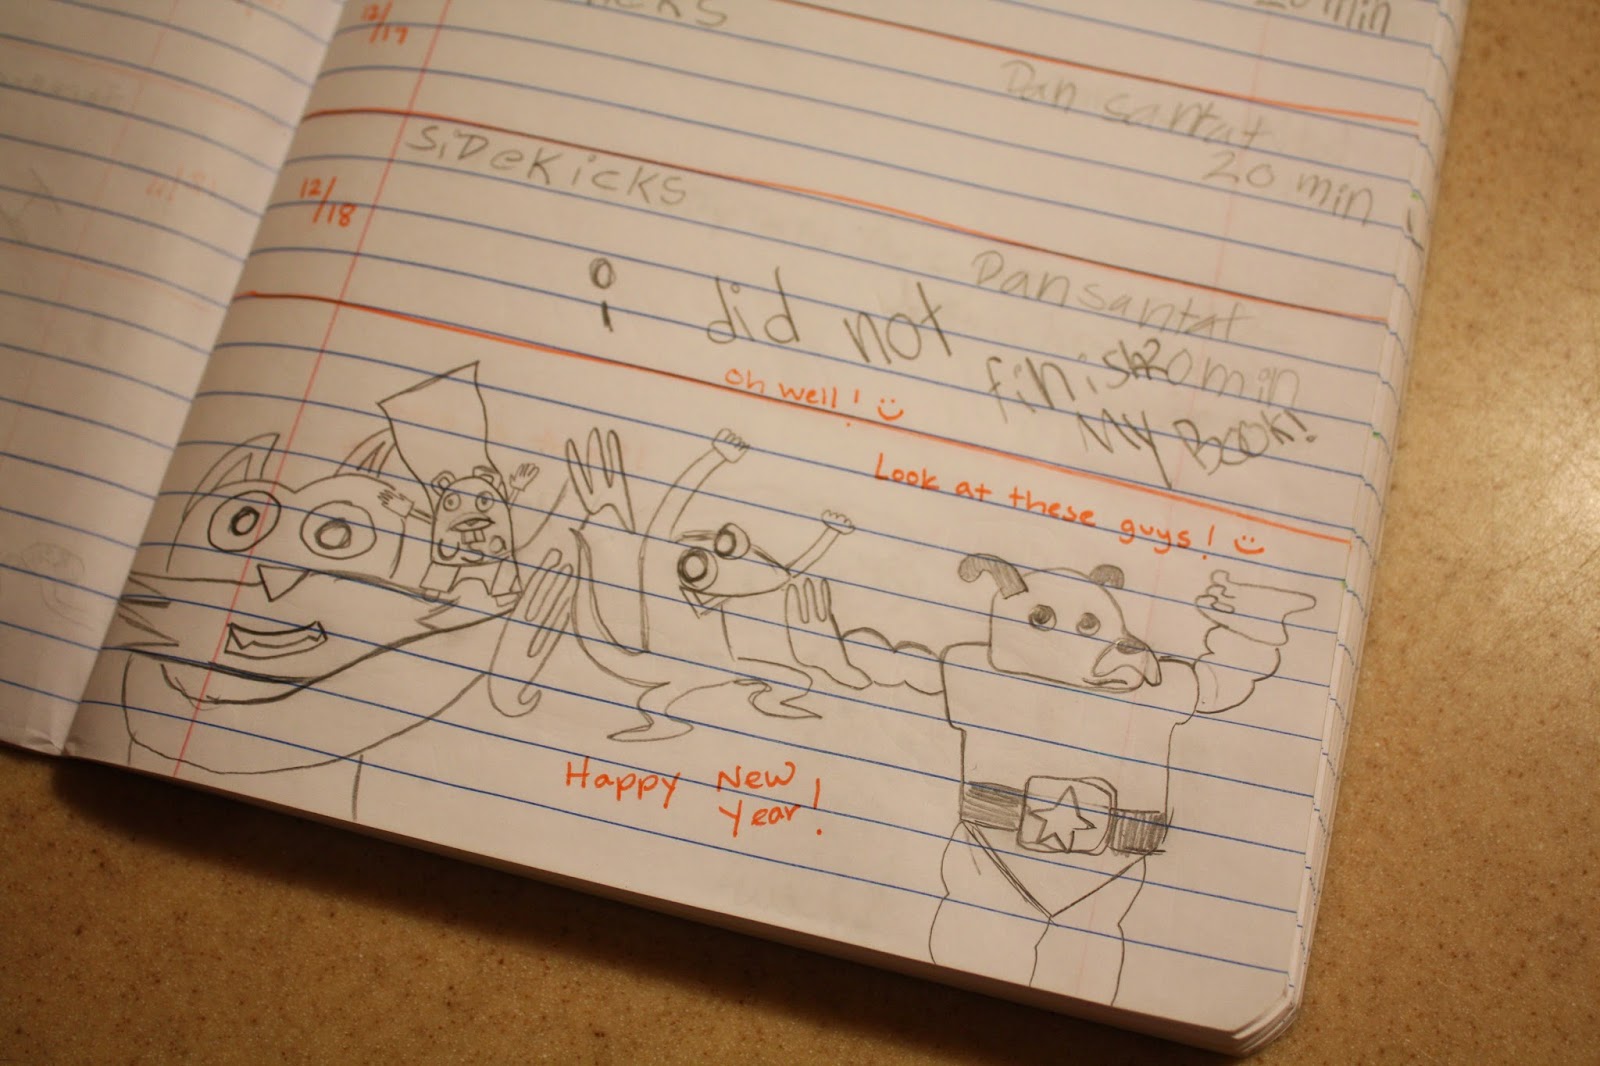 20 min
12/17
Dan santat
20 min
SiDeKicKS
12/18
Dan santat
20 min
i did not finish
My Book!
oh well! :)
Look at these guys! :)
Happy New
Year!